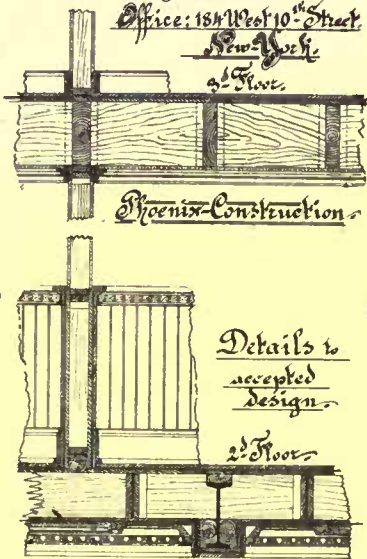 Office: 184 West 10th Street.
New-York.
3d Floor.
Phoenix-Construction
Details to
accepted
design.
2d Floor.